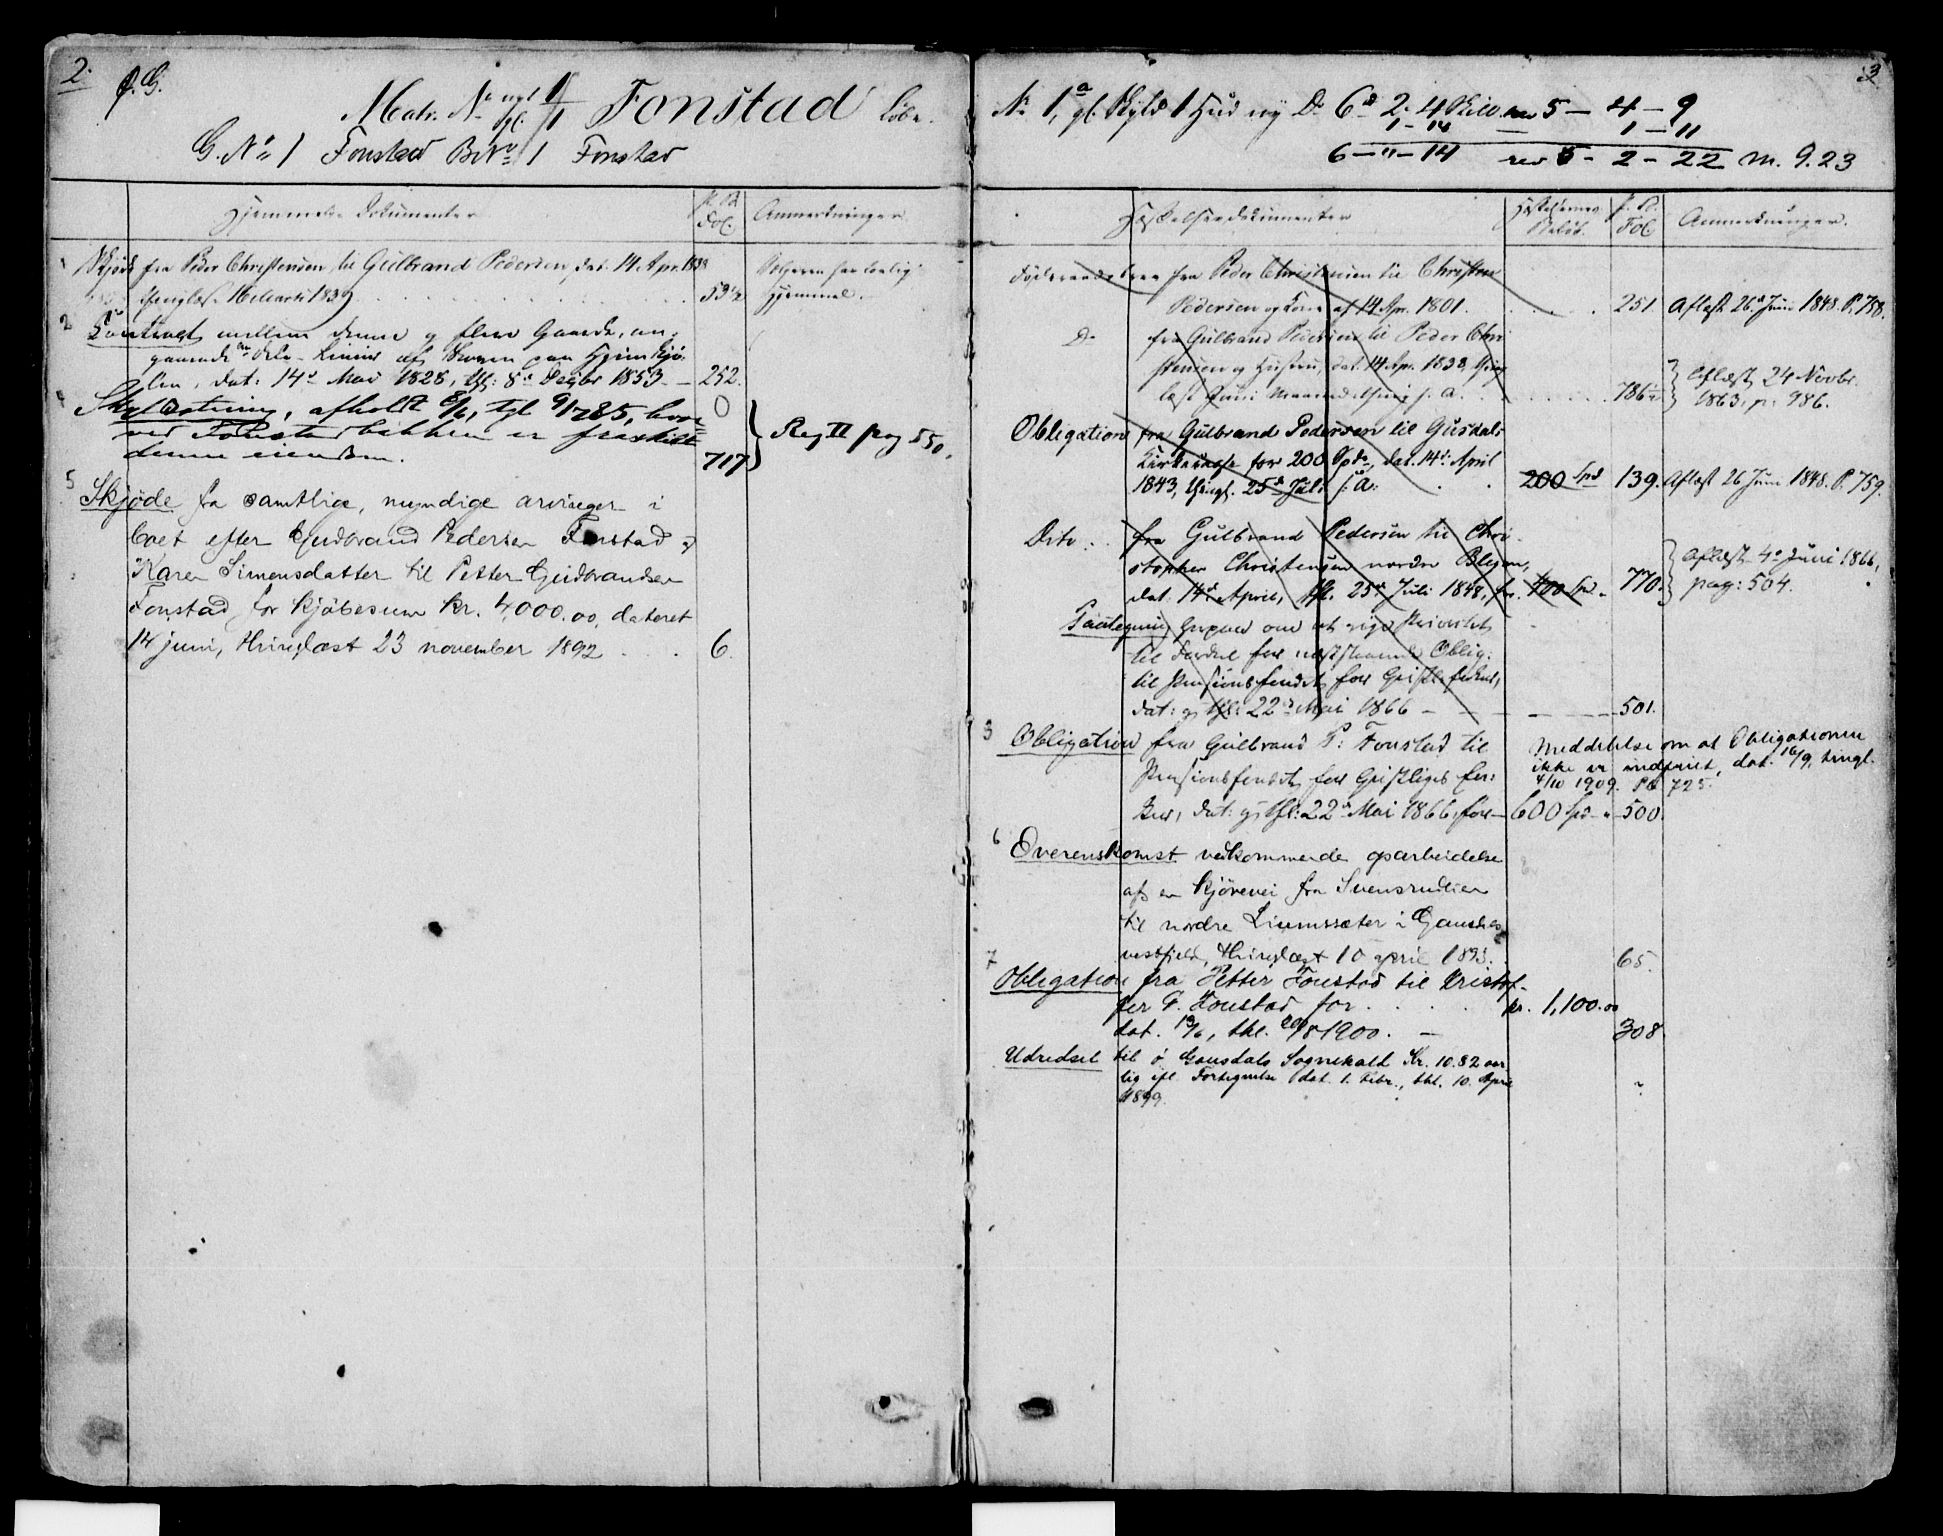 2.
Ø. G.
Matr. No nyt 1 gl. 1 Fonstad Löbe.
G. No 1 Fonstad B.No 1 Fonstad
Hjemmels Dokumenter
P. B. Fol.
Anmerkninger
1 Skjöde fra Peder Christensen til Gulbrand Pedersen, dat. 14 Apr. 1838
thinglæst 16 Marts 1839 . . . 53½
Sælgeren har lovlig
Hjemmel.
2 Contract mellem denne og flere Gaarde, an-
gaaende
len, dat: 14de Mai 1828, thl: 8de Decbr 1853 — 252.
Skyldetning, afholdt 8/6, tgl 9/7 85, hvor-
ved Fonstadbakken er fraskilt
denne eiendom.
0
717
Reg II pag 550.
5 Skjøde fra samtlige, myndige arvinger i
boet efter Gudbrand Pedersen Fonstad og
Karen Simensdatter til Petter Gudbrandsen
Fonstad for kjøbesum kr. 4,000.00, dateret
14 juni, thinglæst 23 november 1892 . . . 6.
3
No 1a, gl. Skyld 1 Hud ny Do 6 d 2. 4 Skill. rev 5 – 4 – 9
1 – 14
1 – 11
6 – " – 14 rev 5 – 2 – 22 M. 9.23
Hæftelsesdokumenter
Hæftelsernes Beløb.
P. B. Fol
Anmærkninger.
Föderaadsbrev fra Peder Christensen til Christen
Pedersen og Kone af 14 Apr. 1801. . . . 251.
Aflæst 26de Juni 1848. P. 758.
Do fra Gulbrand Pedersen til Peder Chri-
stensen og Hustru, dat. 14 Apr. 1838, thing-
læst Juni Maanedsthing s. A. . . . 786
Aflæst 24 Novbr.
1863, p. 986.
Obligation fra Gulbrand Pedersen til Gusdals
Kirkecasse for 200 Spd., dat. 14de April
1843, thingl. 25de Juli s. A. . . 200 Spd 139.
Aflæst 26 Juni 1848. P. 759.
Dito . . fra Gulbrand Pedersen til Chri-
stopher Christensen nordre Blejen,
dat. 14de April, thl. 25de Juli 1848, for 400 Spd. 770.
Aflæst 4de Juni 1866,
pag: 504.
Paategning om at vige Prioritet
til Fordel for næststaaende Oblig:
til Pensionsfondet for
dat: og thl: 22de Mai 1866 — — — 501.
3 Obligation fra Gulbrand P: Fonstad til
Pensionsfondet for Geistliges En-
ker, dat: og thl: 22de Mai 1866, for — 600 Spd — 500.
Meddelelse om at Obligationen
ikke er indfriet, dat. 16/9, tingl.
4/10 1909. Pb 725.
6 Overenskomst vedkommende oparbeidelse
af en kjørevei fra Svensrudlien
til nordre Liumssæter i Gausdals
vestfjeld, thinglæst 10 april 1893. . 65.
7
Obligation fra Petter Fonstad til Kristof-
fer G. Fonstad for . . . . kr. 1,100.00
dat. 19/6, thl. 20/8 1900. — 308
Udredsel til ö. Gausdals Sognekald Kr. 10.82 aar-
lig ifl. Fortegnelse dat. 1. Febr., thl. 10. April
1899.